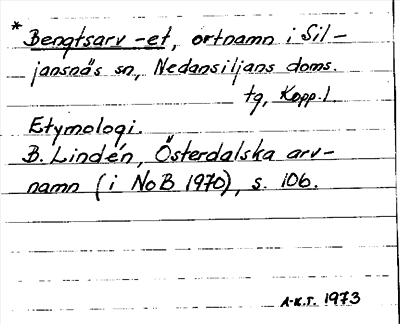 * Bengtsarv -et, ortnamn i Sil-
jansnäs sn, Nedansiljans doms.
tg, Kopp.l.
Etymologi.
B. Lindén, Österdalska arv-
namn (i NoB 1970), s. 106.
A-K.T. 1973